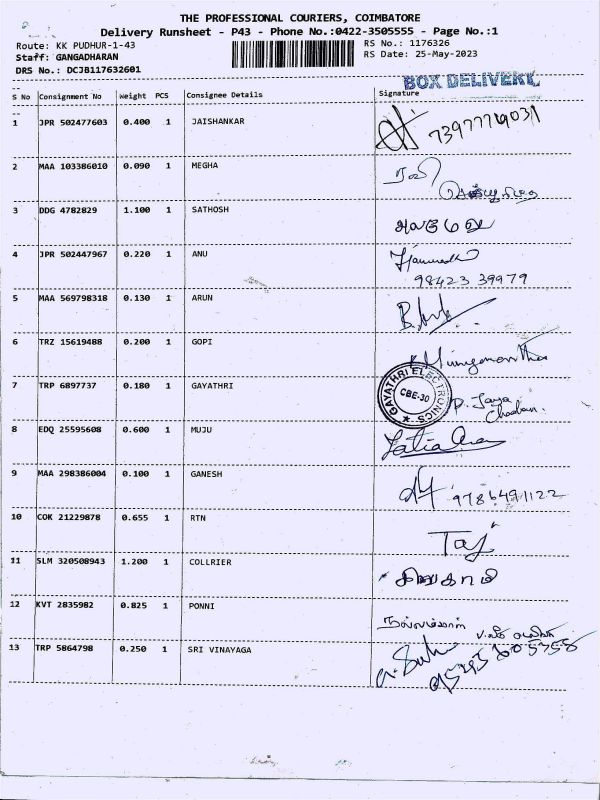 THE PROFESSIONAL COURIERS, COIMBATORE
Delivery Runsheet - P43 - Phone No.:0422-3505555 - Page No.:1
Route: KK PUDHUR-1-43 RS No.: 1176326
Staff: GANGADHARAN RS Date: 25-May-2023
DRS No.: DCJB117632601
BOX DELIVERY
S No Consignment No Weight PCS Consignee Details Signature
1 JPR 502477603 0.400 1 JAISHANKAR
2 MAA 103386010 0.090 1 MEGHA
3 DDG 4782829 1.100 1 SATHOSH
4 JPR 502447967 0.220 1 ANU
98423 39979
5 MAA 569798318 0.130 1 ARUN
6 TRZ 15619488 0.200 1 GOPI
7 TRP 6897737 0.180 1 GAYATHRI
GAYATHRI ELECTRONICS CBE-30
P. Jaya
8 EDQ 25595608 0.600 1 MUJU
9 MAA 298386004 0.100 1 GANESH
9786491122
10 COK 21229878 0.655 1 RTN Taj
11 SLM 320508943 1.200 1 COLLRIER
12 KVT 2835982 0.825 1 PONNI
13 TRP 5864798 0.250 1 SRI VINAYAGA